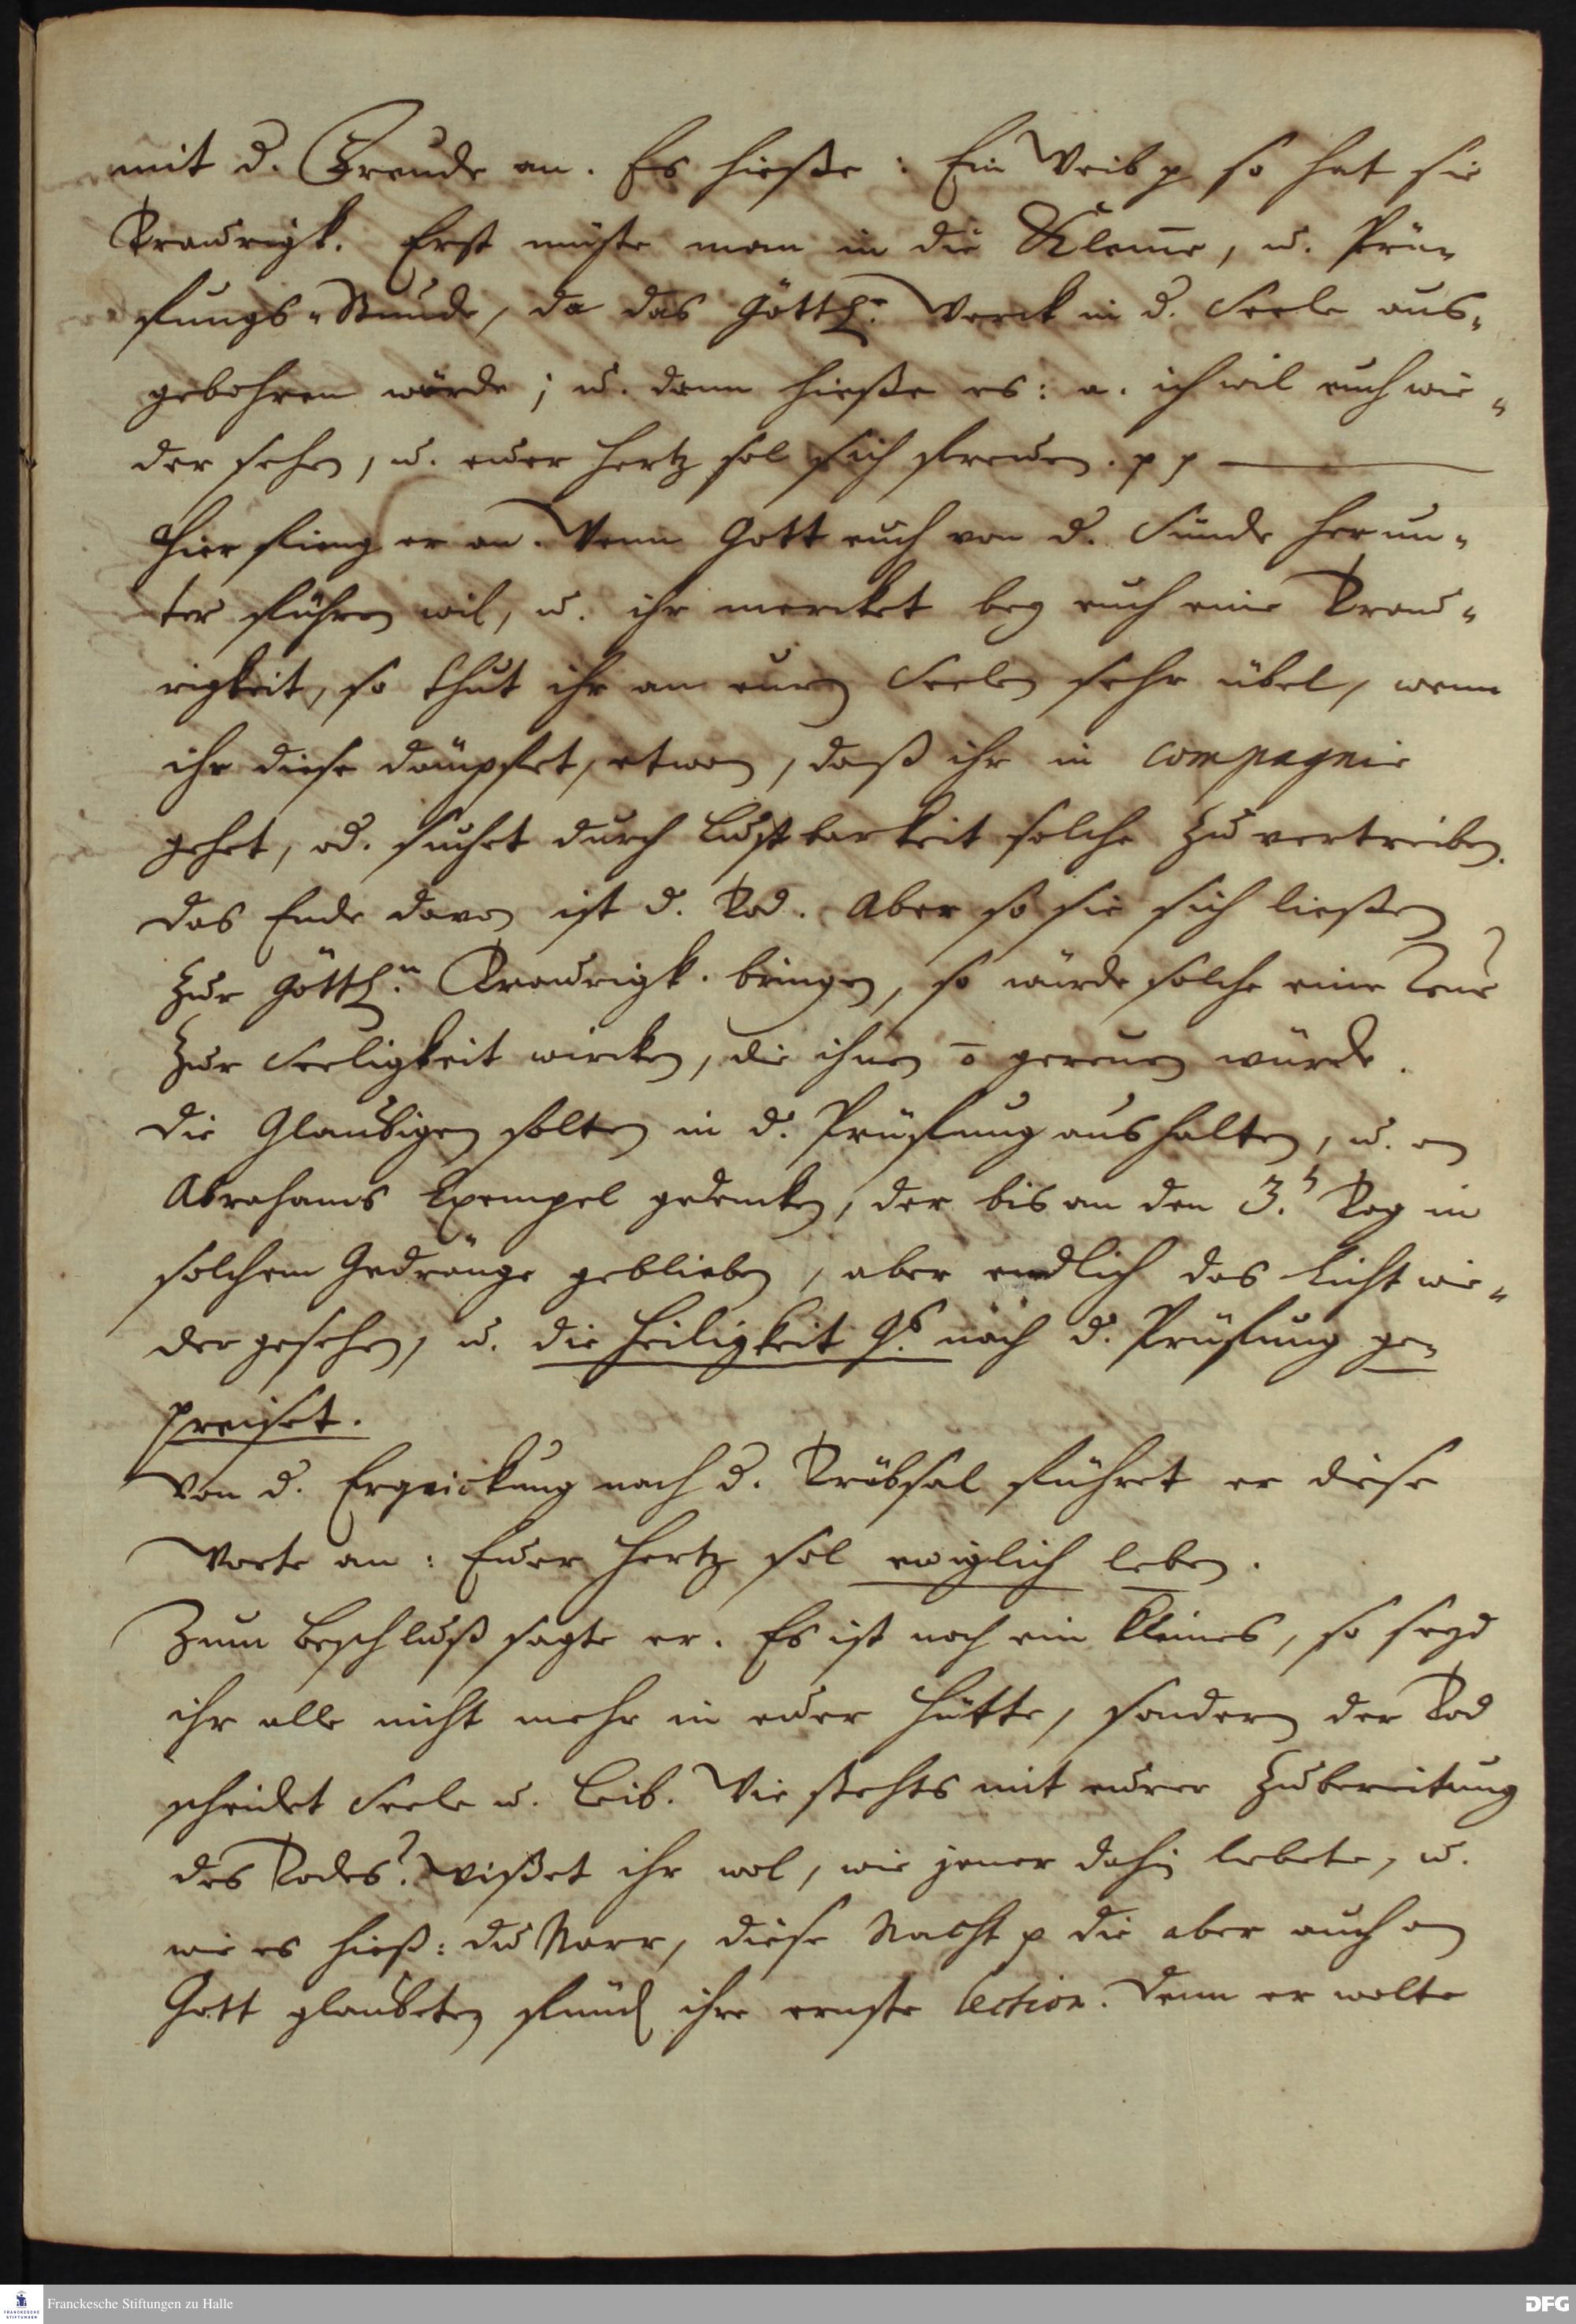 mit d. Freude an. Es hieße: Ein Weib p so hat sie
Traurigk. Erst müste man in die Klem̅e, u. Prü-
fungs-Stunde, da das Göttl. Werck in d. Seele aus-
gebohren würde; u. dann hieße es: a. ich wil euch wie-
der sehen, u. euer Hertz sol sich freuen. p p
Hier fieng er an. Wenn Gott euch von d. Sünde herun-
ter führen wil, u. ihr mercket bey euch eine Trau-
rigkeit, so thut ihr an euren Seelen sehr übel, wenn
ihr diese dämpfet, etwan, daß ihr in compagnie
gehet, od. suchet durch Lustbarkeit solche zu vertreiben.
das Ende davon ist d. Tod. Aber so sie sich ließen
zur Göttl.n Traurigk. bringen, so würde solche eine Reue
zur Seeligkeit wircken, die ihnen ō gereuen würde.
die Glaubigen solten in d. Prüfung aushalten, u. an
Abrahams Exempel gedencken, der bis an den 3.t Tag in
solchem Gedränge geblieben, aber endlich das Licht wie-
der gesehen, u. die Heiligkeit G. nach d. Prüfung ge-
preiset.
Von d. Erqvickung nach d. Trübsal führet er diese
Worte an: Euer Hertz sol ewiglich leben.
Zum Beschluß sagte er. Es ist noch ein kleines, so seyd
ihr alle nicht mehr in eurer Hütte, sondern der Tod
scheidet Seele u. Leib. Wie stehts mit eurer Zubereitung
des Todes? wißet ihr wol, wie jener dahin lebete, u.
wie es hieß: du Narr, diese Nacht p die aber auch an
Gott glaubeten ihre ernste lection. Denn er wolte
Franckesche Stiftungen zu Halle
DFG